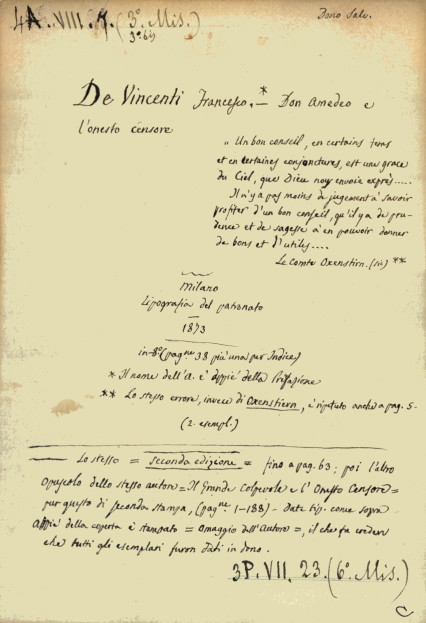 4A. VIII. 7. (3º. Mis.)
3º bis
Dono Salv.
De Vincenti Francesco.* — Don Amedeo e
l'onesto censore
„ Un bon conseil, en certains tems
et en certaines conjonctures, est une grace
du Ciel, que Dieu nous envoie exprès.....
Il n'y a pas moins de jugement à savoir
profiter d'un bon conseil, qu'il y a de pru-
dence et de sagesse à en pouvoir donner
de bons et d'utiles....
Le Comte Oxenstirn. (sic) **
Milano
Lipografia del patronato
1873
in-8º (pagne 38 più una per Indice)
* Il nome dell'A. è appiè della Prefazione
** Lo stesso errore, invece di Oxenstiern, è ripetuto anche a pag. 5-
(2. esempl.)
Lo stesso = seconda edizione = fino a pag. 63; poi l'altro
opuscolo dello stesso autore = Il Grande Colpevole e l'Onesto Censore =
pur questo di seconda stampa, (pagne 1-188) - date tip. come sopra
Appiè della coperta è stampato = Omaggio dell'Autore =, il che fa credere
che tutti gli esemplari furon dati in dono.
3P. VII. 23. (6º. Mis.)
C